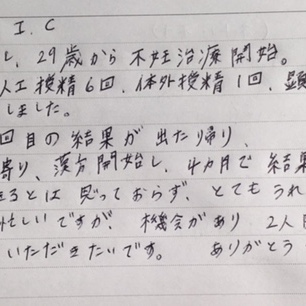 I.C
し、29歳から不妊治療開始。
人工授精6回、体外授精1回、顕
しました。
回目の結果が出た帰り、
寄り、漢方開始し、4ヵ月で結果
きるとは思っておらず、とてもうれ
忙しいですが、機会があり 2人目
いただきたいです。 ありがとう